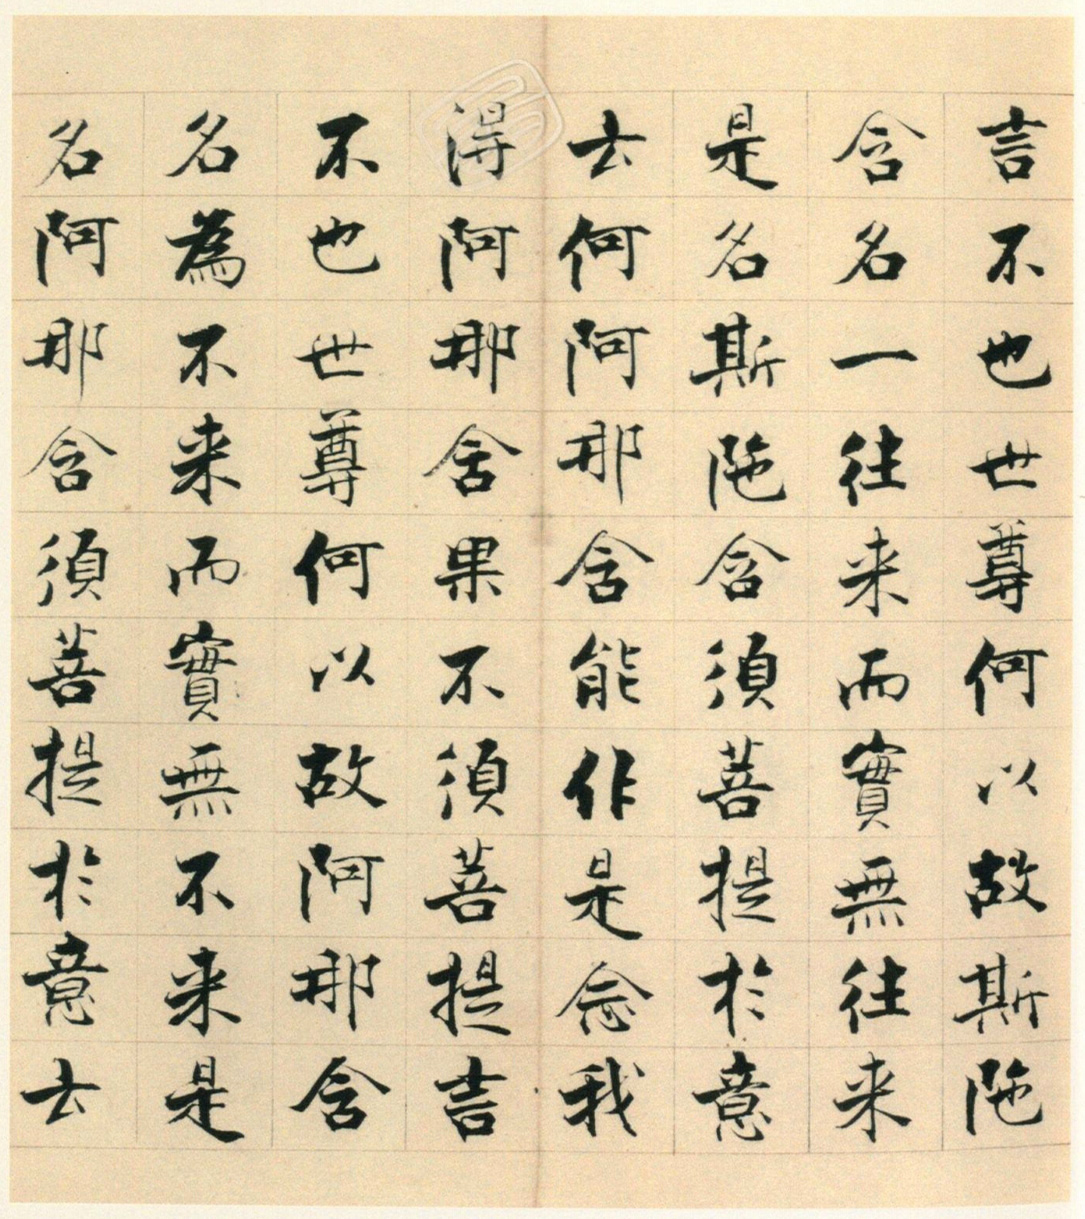 言不也世尊何以故斯陁
含名一往来而實無往来
是名斯陁含須菩提於意
云何阿那含能作是念我
得阿那含果不須菩提言
不也世尊何以故阿那含
名為不来而實無不来是
名阿那含須菩提於意云